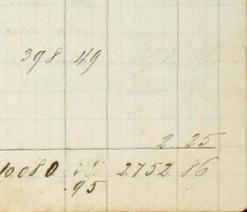 398 49
2 25
10080 2752 86
95